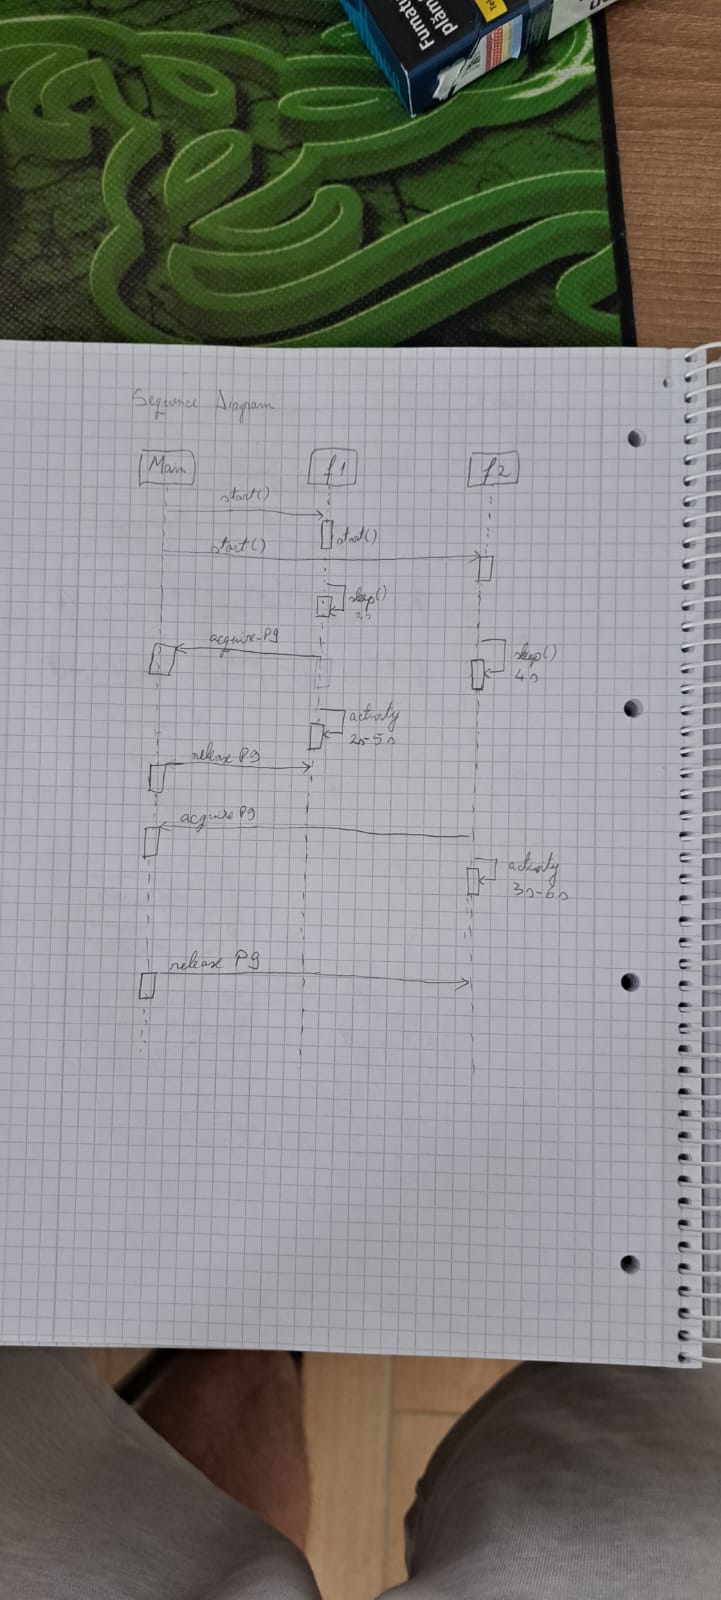 Fumatu
plăm
Tel
Sequence Diagram
Main
f1
f2
start()
start()
start()
sleep()
2s
acquire-P9
sleep()
4s
activity
2s-5s
release P9
acquire P9
activity
3s-6s
release P9